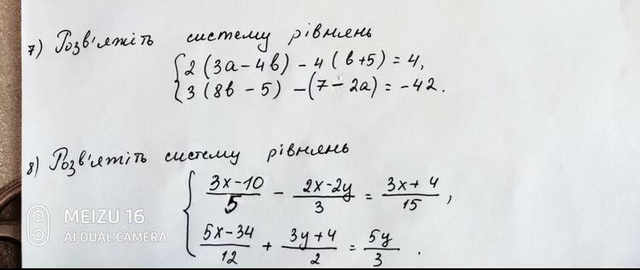 7) Розв'яжіть систему рівнянь
{2(3a-4b)-4(b+5)=4,
{3(8b-5)-(7-2a)=-42.
8) Розв'яжіть систему рівнянь
{(3x-10)/5 - (2x-2y)/3 = (3x+4)/15,
{(5x-34)/12 + (3y+4)/2 = 5y/3.
MEIZU 16
AI DUAL CAMERA